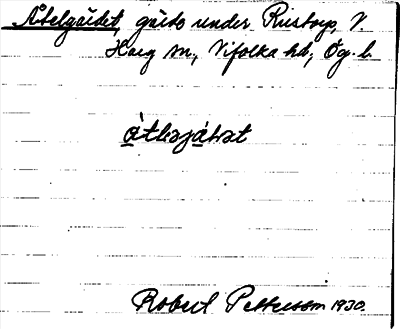 Åtelgärdet, gärde under Ristorp, V.
Harg sn, Vifolka hd, Ög. l.
Robert Pettersson 1930.